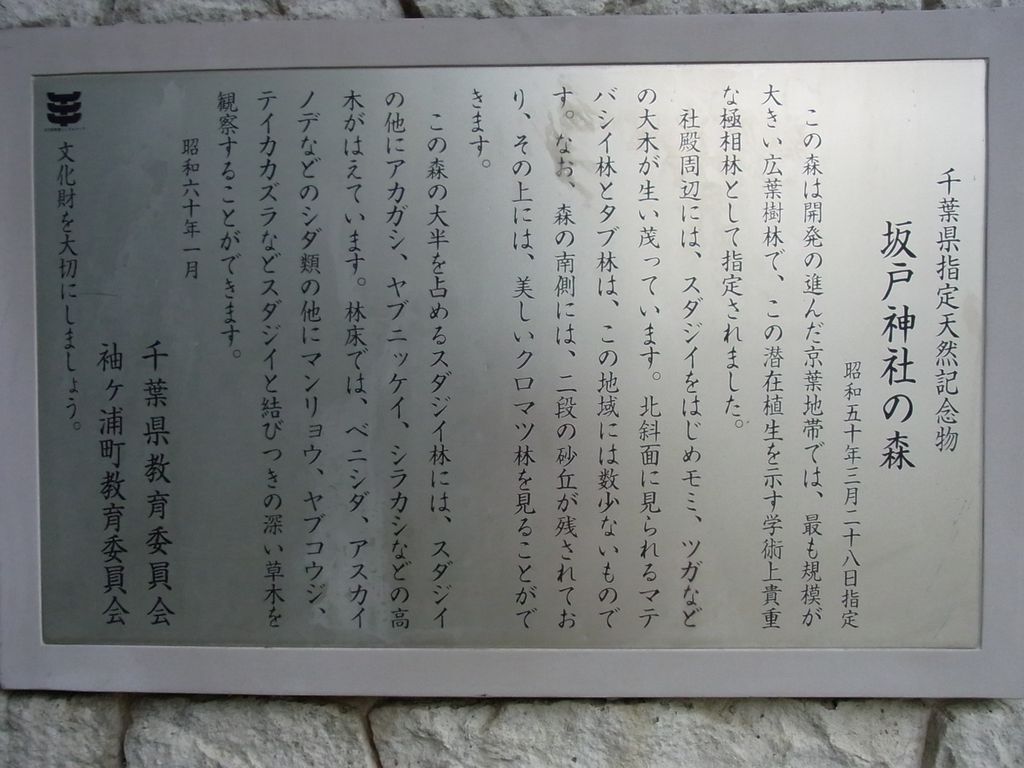 千葉県指定天然記念物
坂戸神社の森
昭和五十年三月二十八日指定
この森は開発の進んだ京葉地帯では、最も規模が
大きい広葉樹林で、この潜在植生を示す学術上貴重
な極相林として指定されました。
社殿周辺には、スダジイをはじめモミ、ツガなど
の大木が生い茂っています。北斜面に見られるマテ
バシイ林とタブ林は、この地域には数少ないもので
す。なお、森の南側には、二段の砂丘が残されてお
り、その上には、美しいクロマツ林を見ることがで
きます。
この森の大半を占めるスダジイ林には、スダジイ
の他にアカガシ、ヤブニッケイ、シラカシなどの高
木がはえています。林床では、ベニシダ、アスカイ
ノデなどのシダ類の他にマンリョウ、ヤブコウジ、
テイカカズラなどスダジイと結びつきの深い草木を
観察することができます。
昭和六十年一月
千葉県教育委員会
袖ケ浦町教育委員会
文化財を大切にしましょう。